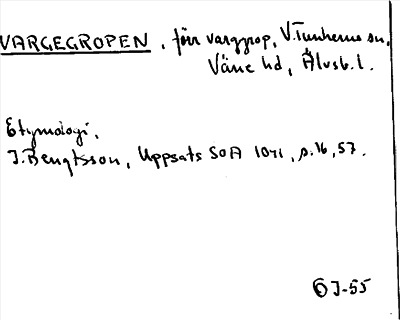 VARGEGROPEN, förr varggrop, V. Tunhems sn,
Väne hd, Älvsb. l.
Etymologi.
J. Bengtsson, Uppsats SOA 1041, s. 16, 57.
J-55